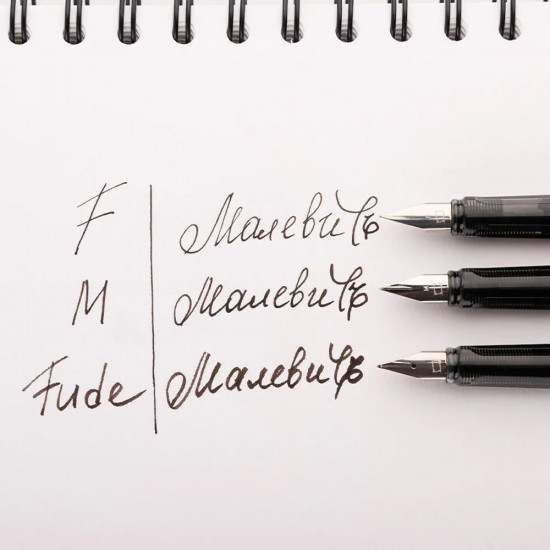 F Малевичъ
M Малевичъ
Fude Малевичъ